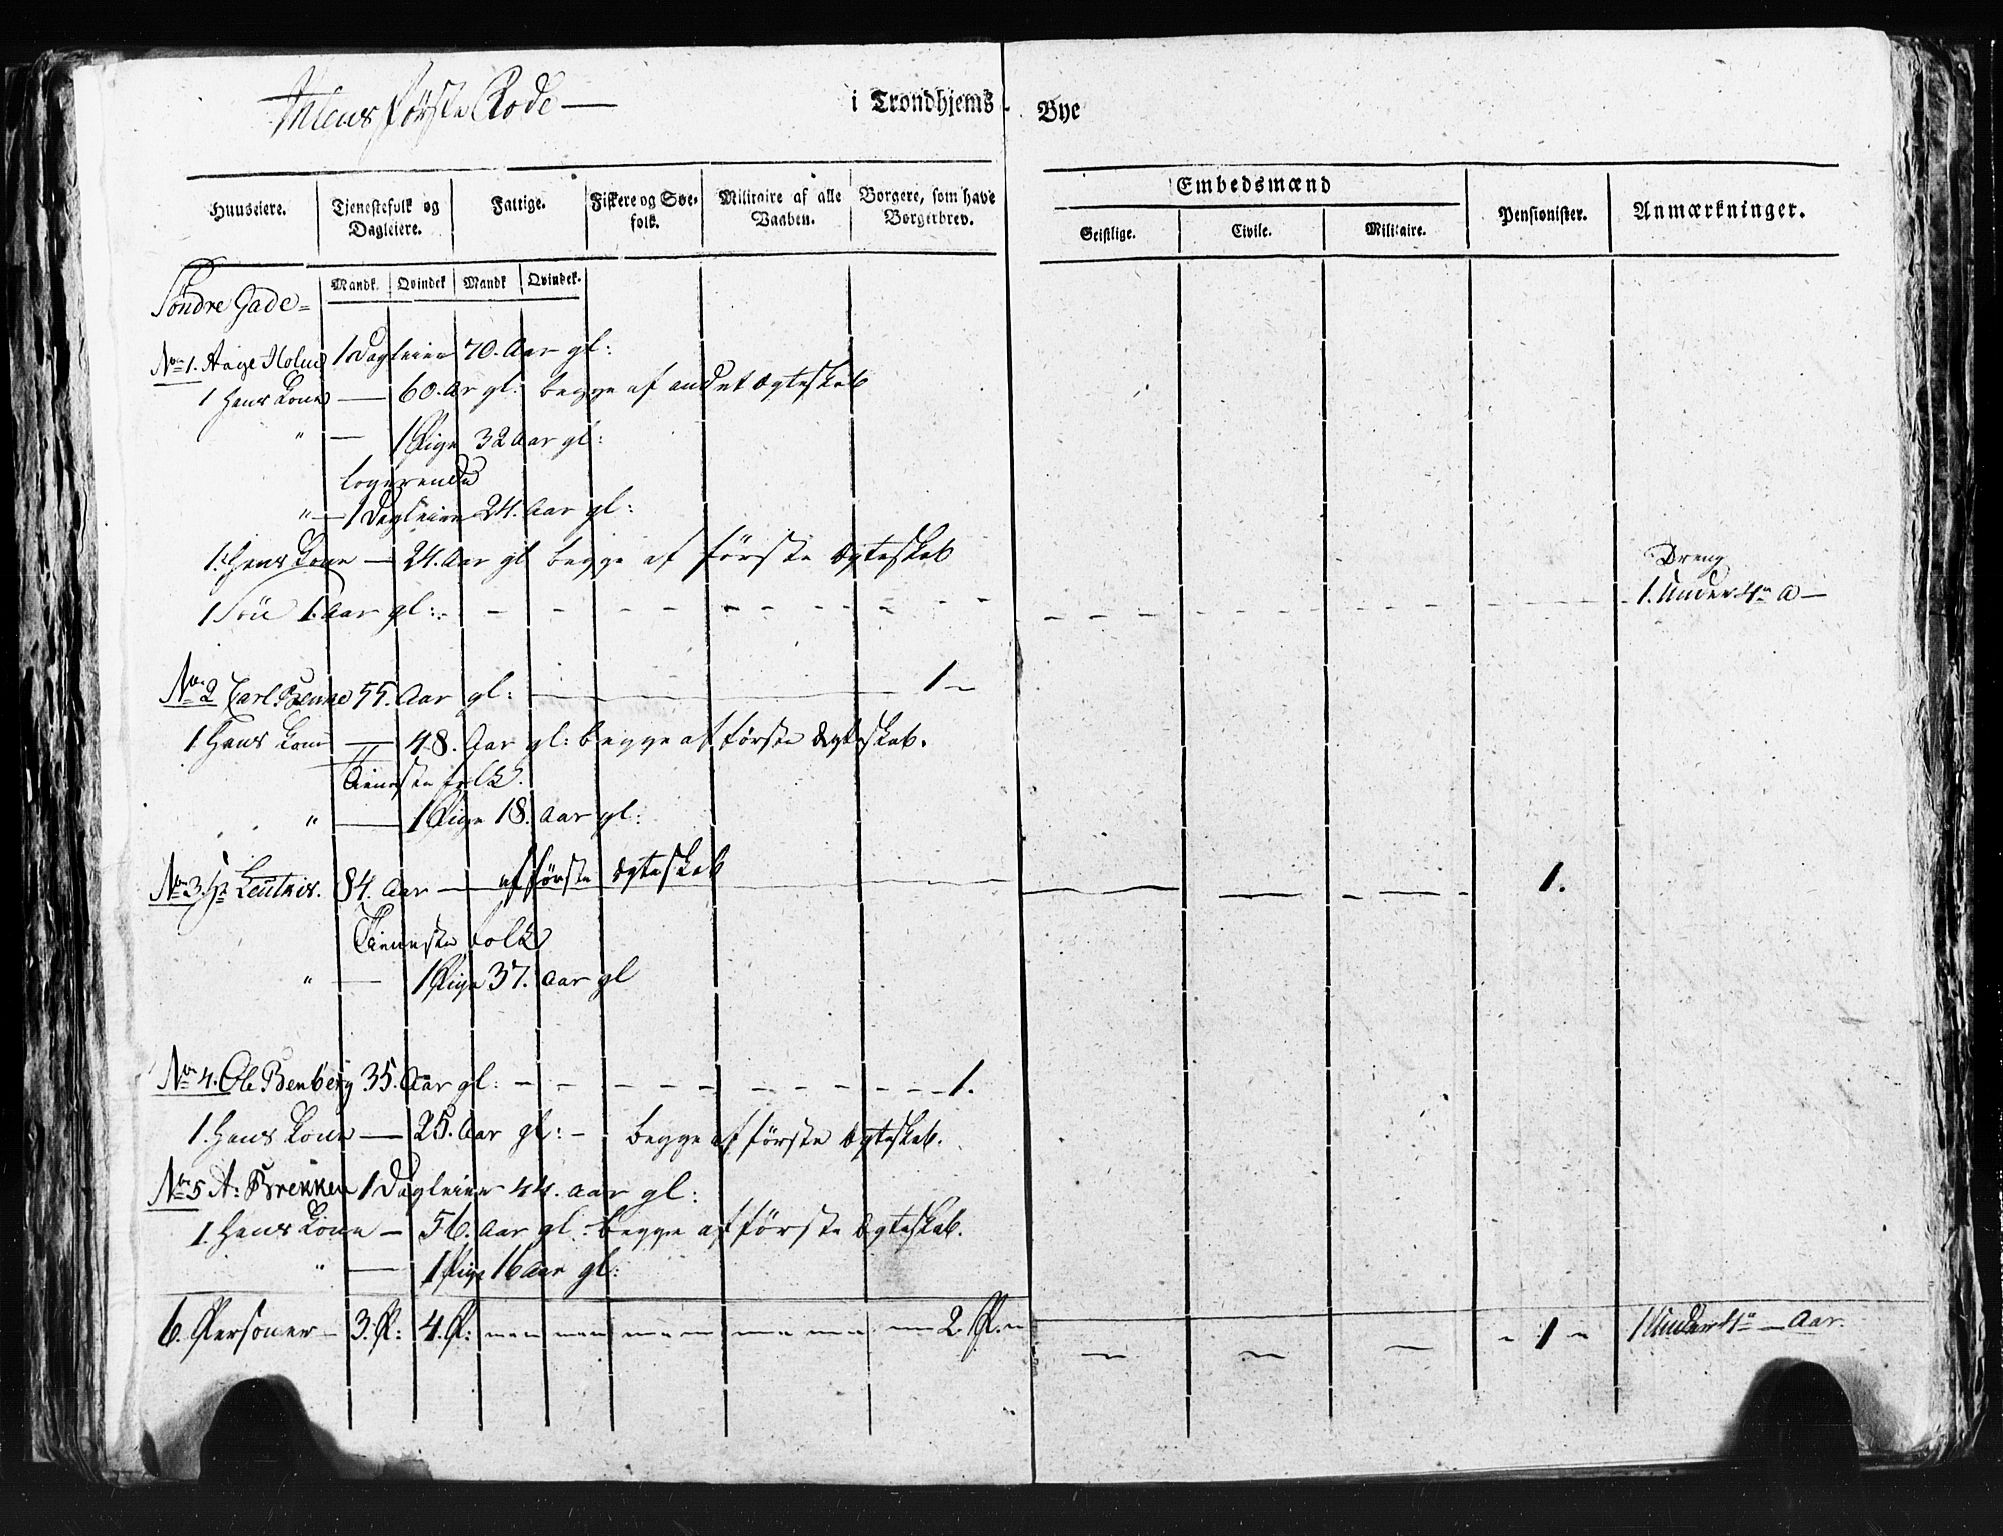 Ihlens første Rode — i Trondhjems - Bye
Huuseiere. Tjenestefolk og Dagleiere. Fattige. Fiskere og Søe-folk. Militaire af alle Vaaben. Borgere, som have Borgerbrev. Embedsmænd Pensionister. Anmærkninger.
Geistlige. Civile. Militaire.
Mandk. Qvindek Mandk Qvindek.
Søndre Gade =
No 1. Aage Holm 1 Dagleier 70. Aar gl:
1 Hans Kone — 60. Ar gl: begge af andet Ægteskab
" — 1 Pige 32 Aar gl:
Logerende
" — 1 Dagleier 24. Aar gl:
1. Hans Kone — 24. Aar gl begge af første Ægteskab
Dreng
1 Søn 1. Aar gl: - - - - - - 1. Under 4re A —
No 2 Carl 55. Aar gl: — 1 -
1. Hans Kone — 48. Aar gl: begge af første Ægteskab.
Tieneste folk.
" — 1 Pige 18. Aar gl:
No 3. Hr 84. Aar — af første Ægteskab — 1.
Tieneste folk
" — 1 Pige 37. Aar gl
No 4. Ole Benberg 35. Aar gl: - - - - - - 1.
1. Hans Kone — 25. Aar gl: - begge af første Ægteskab.
No 5 A: Brekken 1 Dagleier 44. Aar gl:
1. Hans Kone — 56. Aar gl: begge af første Ægteskab.
" — 1 Pige 16 Aar gl:
6. Personer — 3. P: 4. P: 2. P. - 1 - 1 Under 4re — Aar.